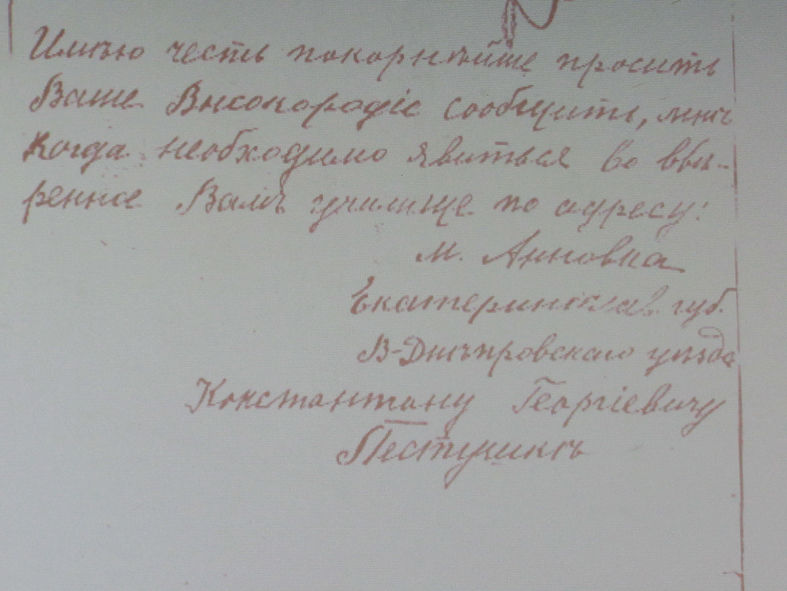 Имѣю честь покорнѣйше просить
Ваше Высокородіе сообщить, мнѣ
Когда необходимо явиться во ввѣ-
ренное Вамъ училище по адресу:
м. Анновка
Екатеринослав. губ.
В-Днѣпровскаго уѣзда
Константину Георгіевичу